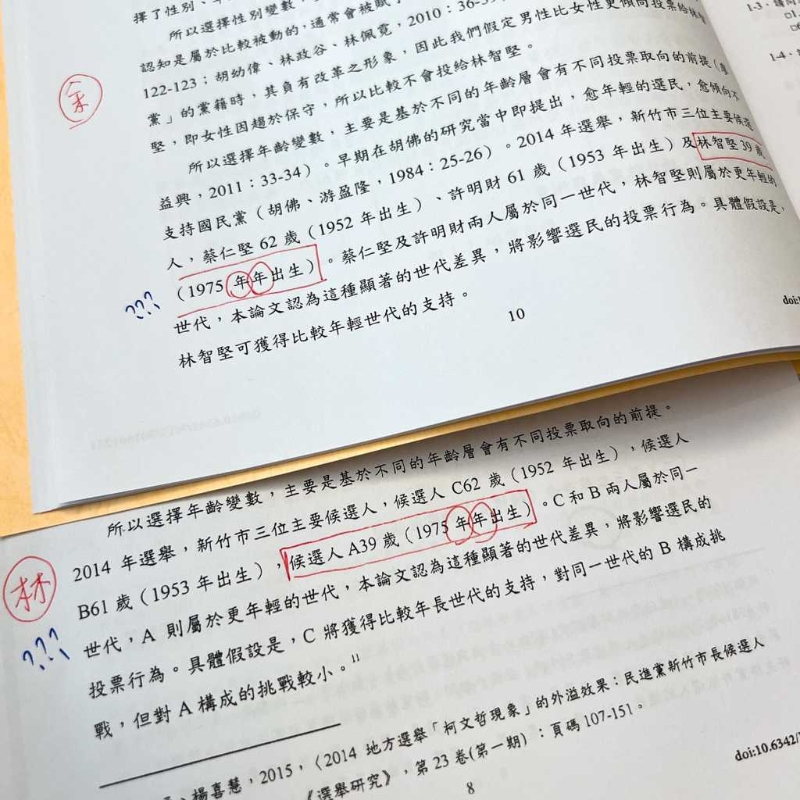 擇了性別、
所以選擇性別變數,
認知是屬於比較被動的,通常會被賦
122-123;胡幼偉、林政谷、林佩霓,2010:36-3
黨」的黨籍時,其負有改革之形象,因此我們假定男性比女性更傾向投票給林智
堅,即女性因趨於保守,所以比較不會投給林智堅。
所以選擇年齡變數,主要是基於不同的年齡層會有不同投票取向的前提
益興,2011:33-34)。早期在胡佛的研究當中即提出,愈年輕的選民,愈傾向不
支持國民黨(胡佛、游盈隆,1984:25-26)。2014 年選舉,新竹市三位主要候選
人,蔡仁堅 62 歲(1952 年出生)、許明財 61 歲(1953 年出生)及林智堅 39 歲
(1975 年年出生)。蔡仁堅及許明財兩人屬於同一世代,林智堅則屬於更年輕的
世代,本論文認為這種顯著的世代差異,將影響選民的投票行為。具體假設是,
林智堅可獲得比較年輕世代的支持。
10
doi:
1-3、
1-4、
余
???
所以選擇年齡變數,主要是基於不同的年齡層會有不同投票取向的前提。
2014 年選舉,新竹市三位主要候選人,候選人 C62 歲(1952 年出生),候選人
B61 歲(1953 年出生),候選人 A39 歲(1975 年年出生)。C 和 B 兩人屬於同一
世代,A 則屬於更年輕的世代,本論文認為這種顯著的世代差異,將影響選民的
投票行為。具體假設是,C 將獲得比較年長世代的支持,對同一世代的 B 構成挑
戰,但對 A 構成的挑戰較小。11
林
???
、楊喜慧,2015,〈2014 地方選舉「柯文哲現象」的外溢效果:民進黨新竹市長候選人
《選舉研究》,第 23 卷(第一期):頁碼 107-151。
8
doi:10.6342/